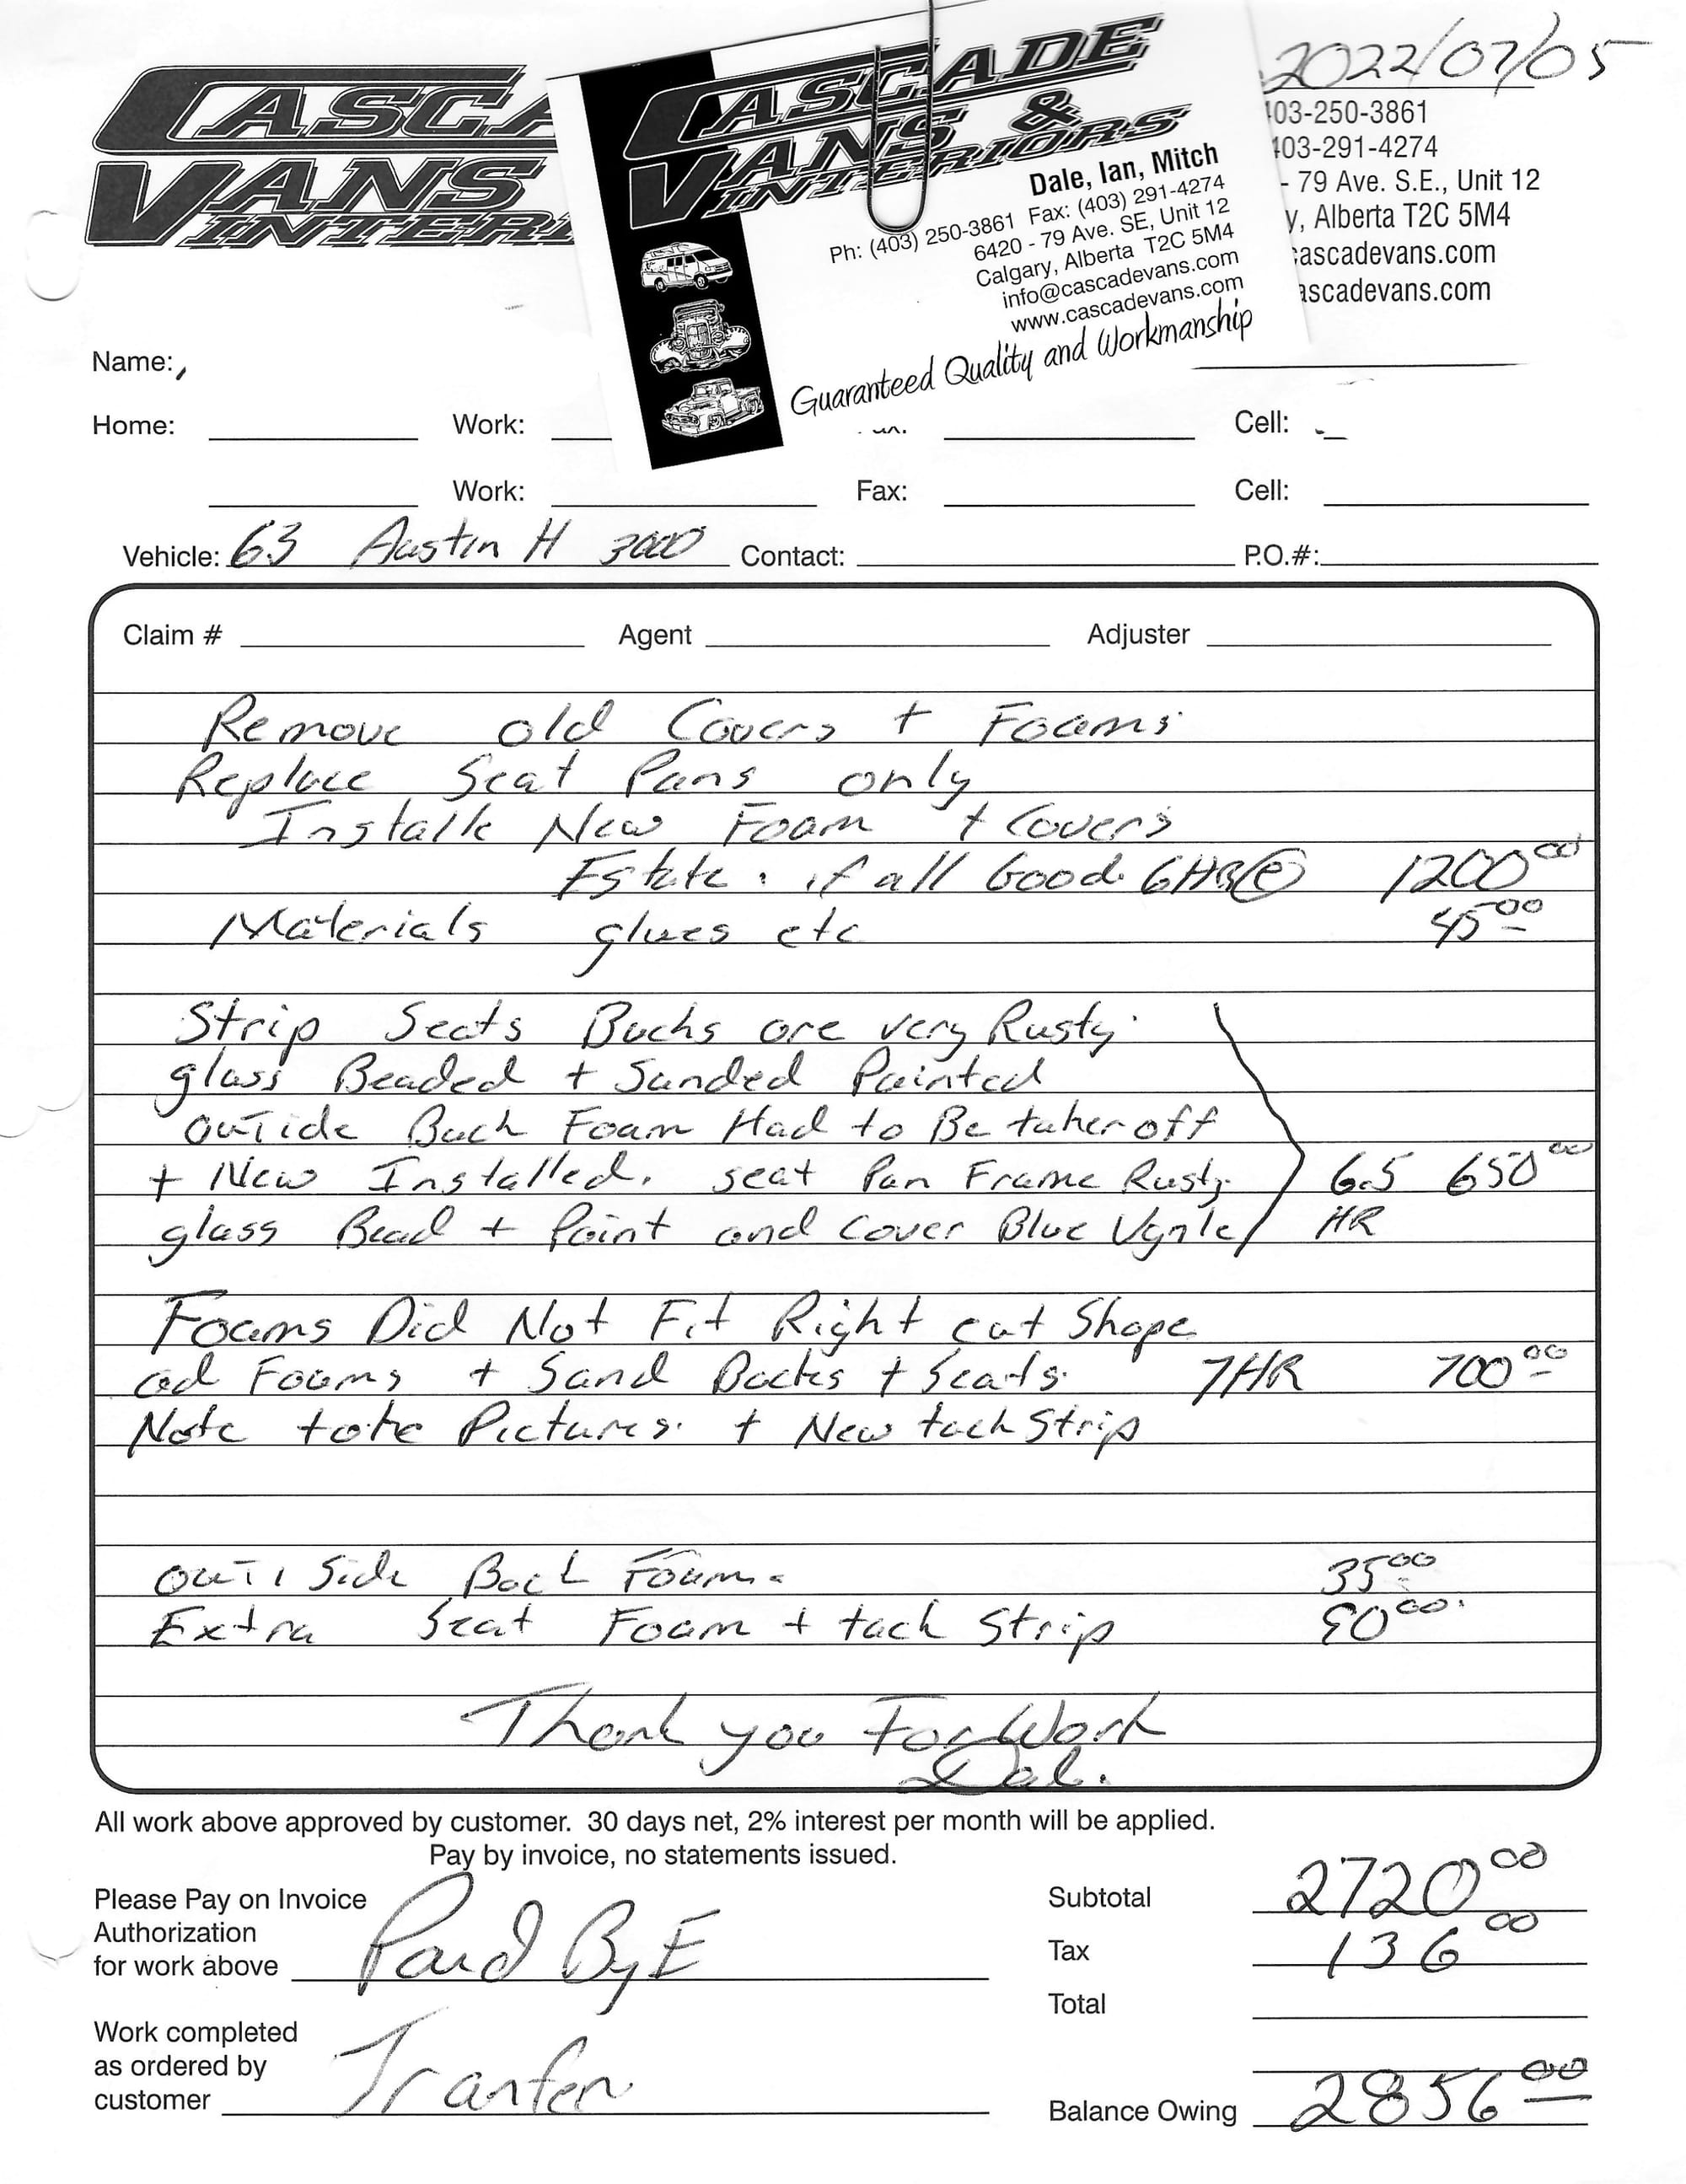 CASCA
VANS
INTERI
CASCADE
VANS &
INTERIORS
Dale, Ian, Mitch
Ph: (403) 250-3861 Fax: (403) 291-4274
6420 - 79 Ave. SE, Unit 12
Calgary, Alberta T2C 5M4
info@cascadevans.com
www.cascadevans.com
Guaranteed Quality and Workmanship
2022/07/05
403-250-3861
403-291-4274
- 79 Ave. S.E., Unit 12
y, Alberta T2C 5M4
cascadevans.com
ascadevans.com
Name:
Home: Work: Cell:
Work: Fax: Cell:
Vehicle: 63 Austin H 3000 Contact: P.O.#:
Claim # Agent Adjuster
Remove old Covers + Foams
Replace Seat Pans only
Installe New Foam + Covers
if all Good. 6HR@ 1200.00
Materials glues etc 45.00
Strip Seats Backs are very Rusty.
glass Beaded + Sanded Painted
Back Foam Had to Be taken off
+ New Installed. seat Pan Frame Rusty. 6.5 650.00
glass Bead + Paint and Cover Blue Vynle HR
Foams Did Not Fit Right cut Shape
ad Foams + Sand Backs + Seats. 7HR 700.00
Note Pictures. + New tack Strip
Side Back Foam. 35.00
Extra Seat Foam + tack Strip 90.00
Thank you For Work
All work above approved by customer. 30 days net, 2% interest per month will be applied.
Pay by invoice, no statements issued.
Please Pay on Invoice
Authorization
for work above Paid By E
Work completed
as ordered by
customer Tranfer
Subtotal 2720.00
Tax 136.00
Total
Balance Owing 2856.00